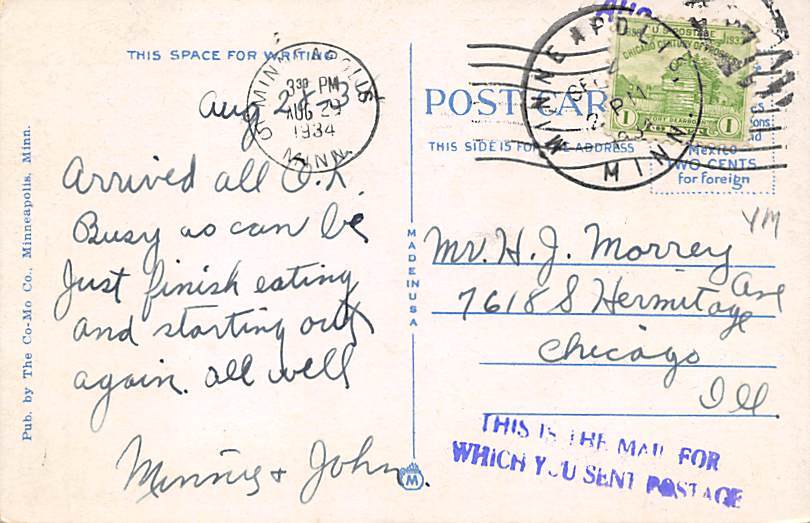 THIS SPACE FOR WRITING
MINNEAPOLIS
3 30 PM
AUG 29
1934
MINN.
Aug
Arrived all O.K.
Busy as can be
Just finish eating
and starting out
again. all well
Minnie + John.
Pub. by The Co-Mo Co., Minneapolis, Minn.
MADE IN USA
M
POST CARD
THIS SIDE IS FOR THE ADDRESS
MINNEAPOLIS
MINN.
U.S. POSTAGE
1833 1933
CHICAGO CENTURY OF PROGRESS
FORT DEARBORN
1 1
Mexico
TWO CENTS
for foreign
YM
Mr. H. J. Morrey
7618 S Hermitage Ave
Chicago
Ill.
THIS IS THE MAIL FOR
WHICH YOU SENT POSTAGE